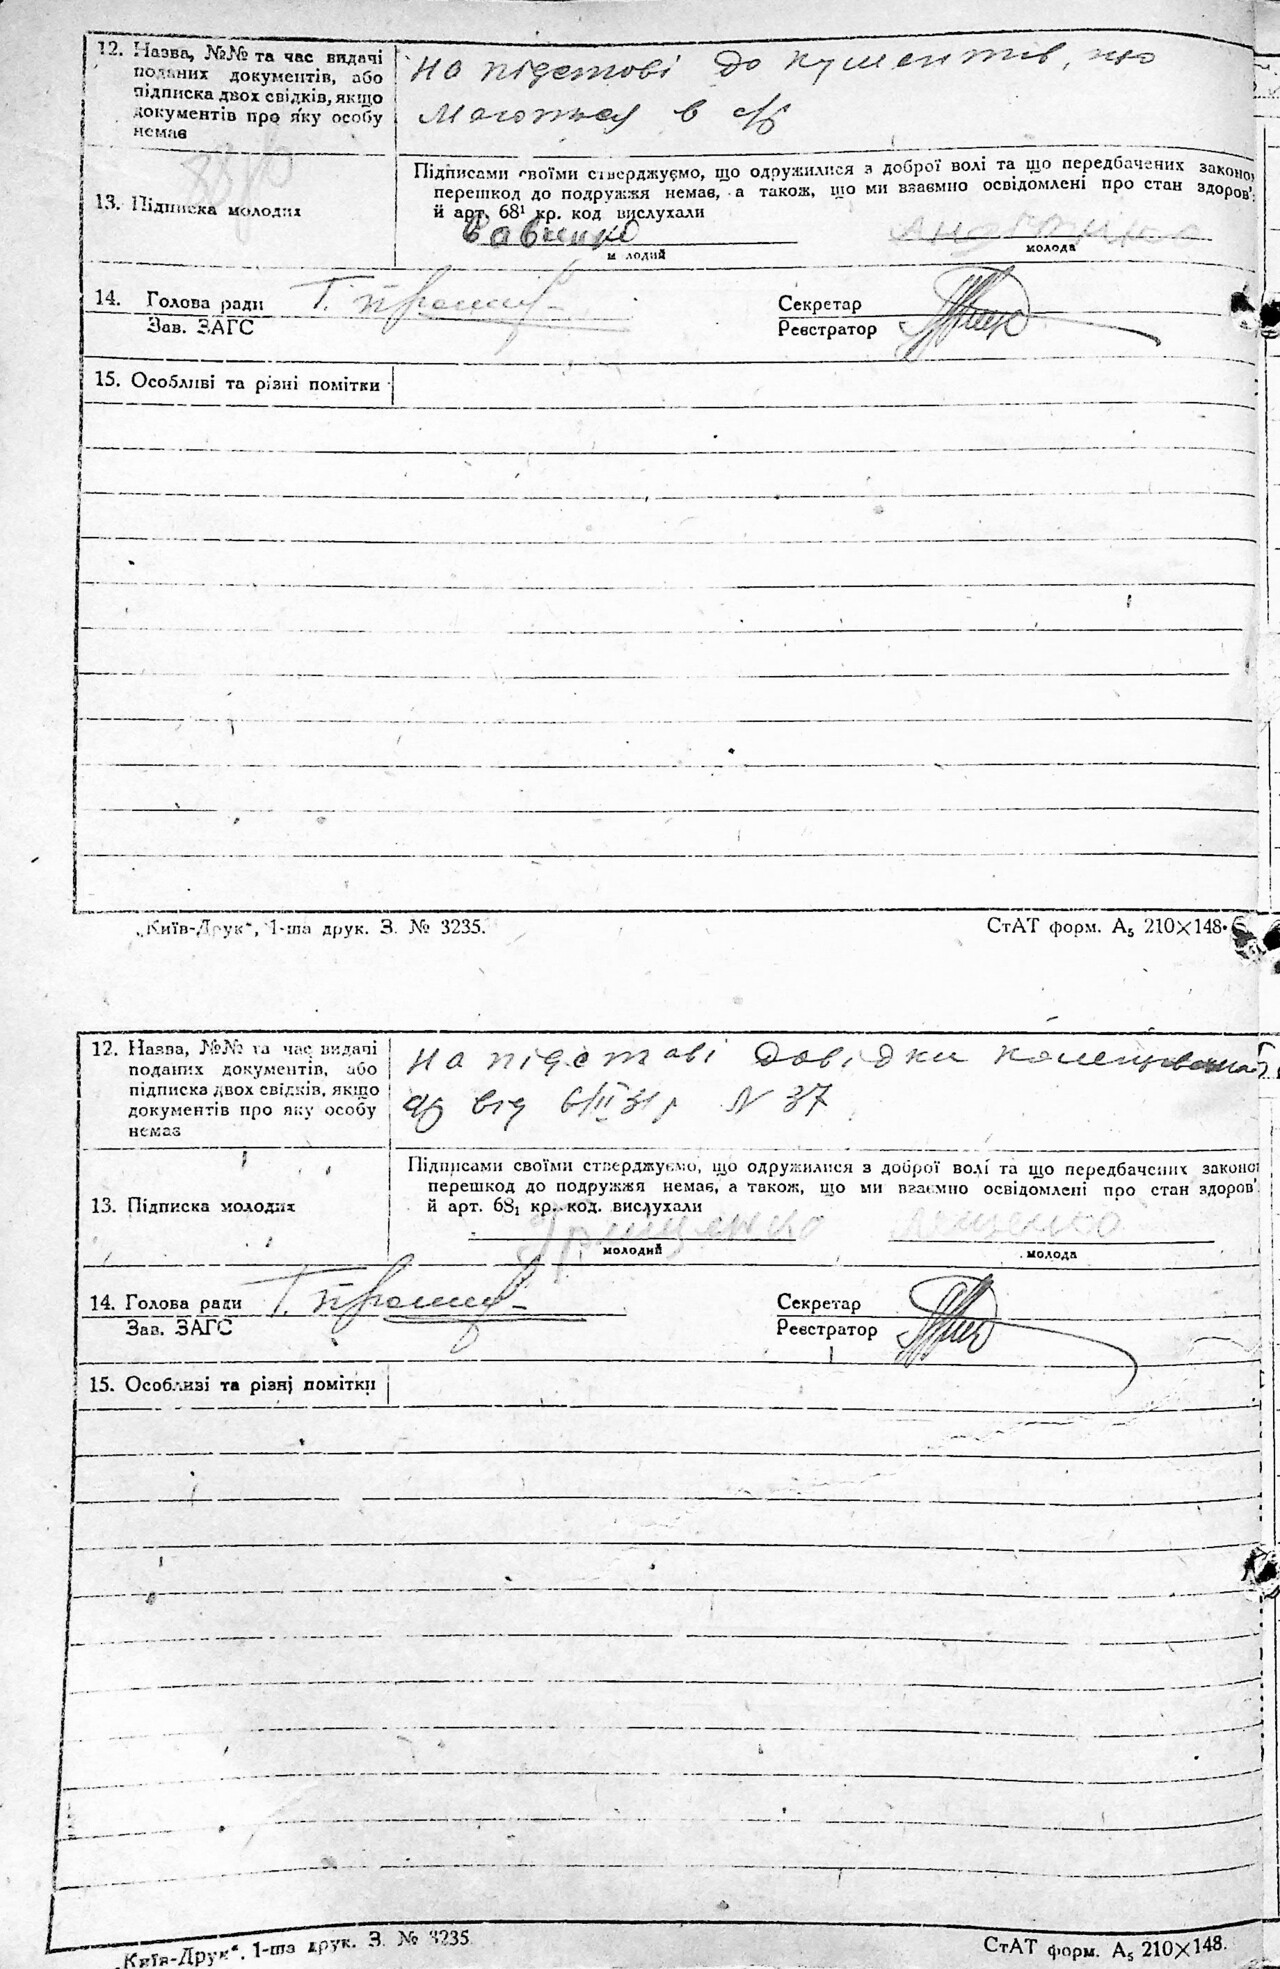 12. Назва, №№ та час видачі
поданих документів, або
підписка двох свідків, якщо
документів про яку особу
немає
на підставі документів, що
маються в с/р
13. Підписка молодих
Підписами своїми стверджуємо, що одружилися з доброї волі та що передбачених законо
перешкод до подружжя немає, а також, що ми взаємно освідомлені про стан здоров'
й арт. 68¹ кр. код вислухали
молодий
молода
14. Голова ради
Зав. ЗАГС
Секретар
Реєстратор
15. Особливі та різні помітки
„Київ-Друк“, 1-ша друк. З. № 3235.
СтАТ форм. А₅ 210×148.
12. Назва, №№ та час видачі
поданих документів, або
підписка двох свідків, якщо
документів про яку особу
немає
на підставі довідки
с/р від 6/II 31р N 37
13. Підписка молодих
Підписами своїми стверджуємо, що одружилися з доброї волі та що передбачених законо
перешкод до подружжя немає, а також, що ми взаємно освідомлені про стан здоров'
й арт. 68₁ кр. код. вислухали
Грищенко
молодий
молода
14. Голова ради
Зав. ЗАГС
Секретар
Реєстратор
15. Особливі та різні помітки
„Київ-Друк“. 1-ша друк. З. № 3235
СтАТ форм. А₅ 210×148.